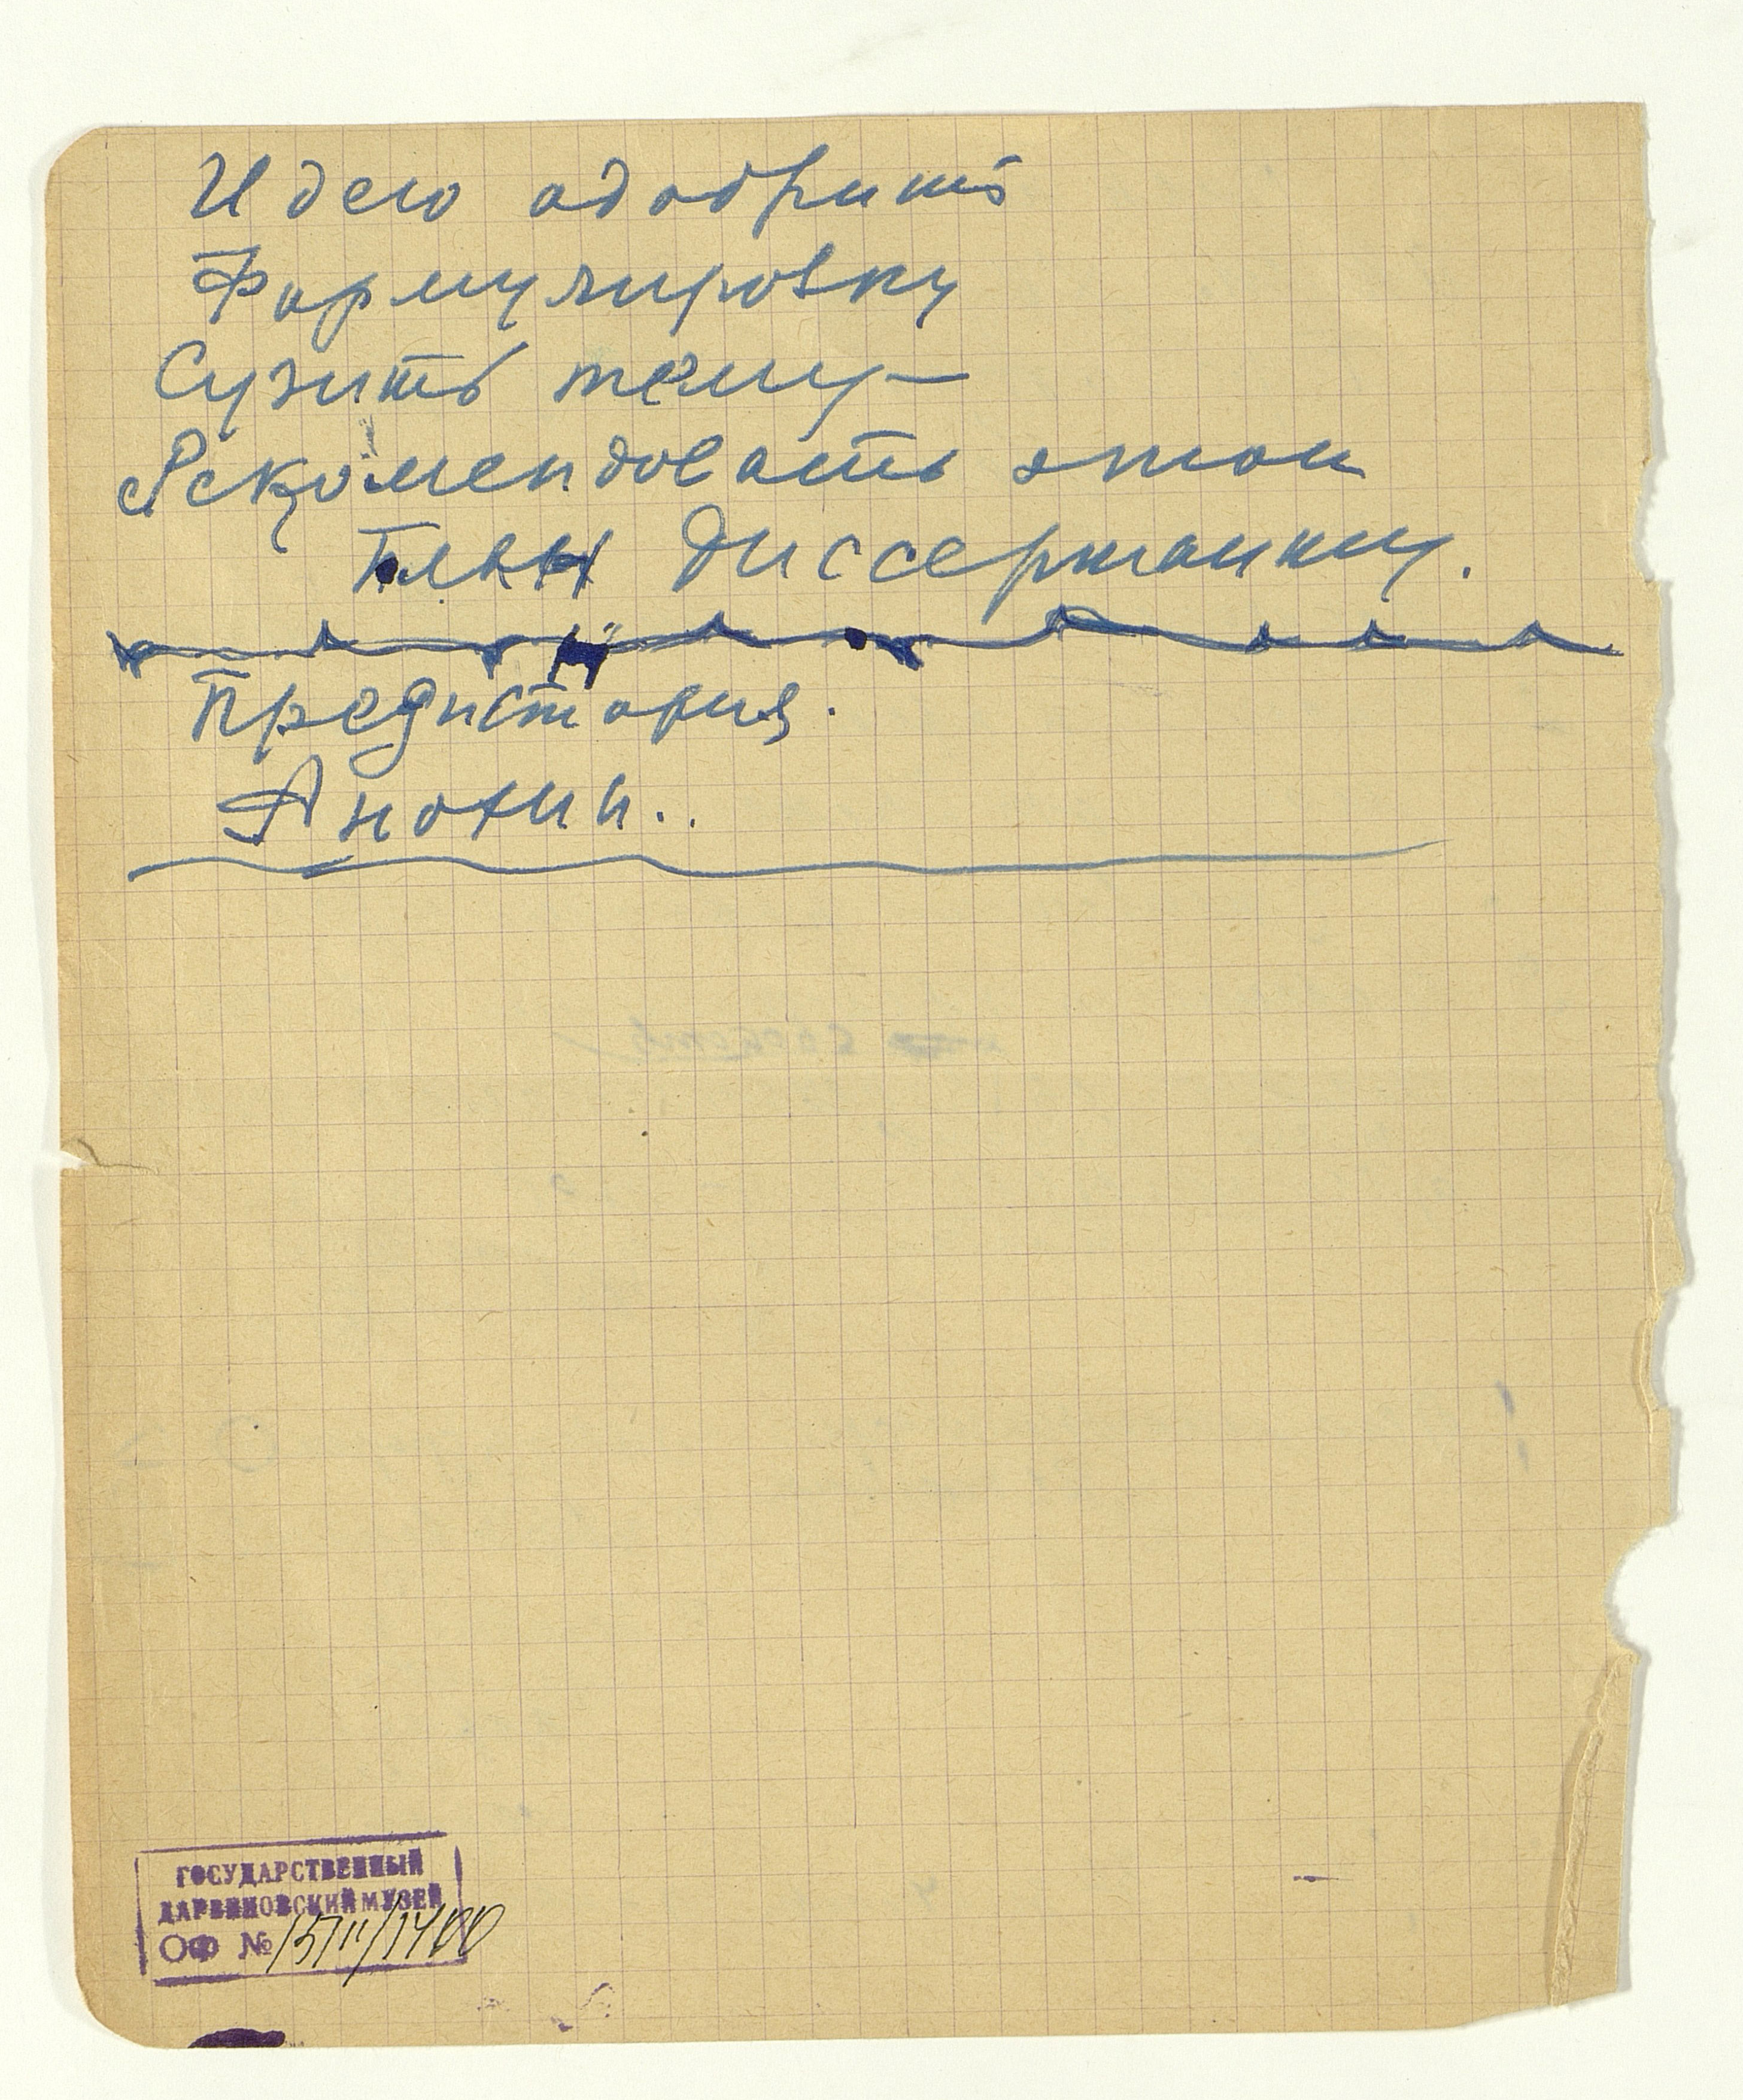 Идею одобрить
Формулировку
Сузить тему —
Рекомендовать этот
план диссертации.
Предистория.
Анохин..
ГОСУДАРСТВЕННЫЙ
ДАРВИНОВСКИЙ МУЗЕЙ
ОФ №